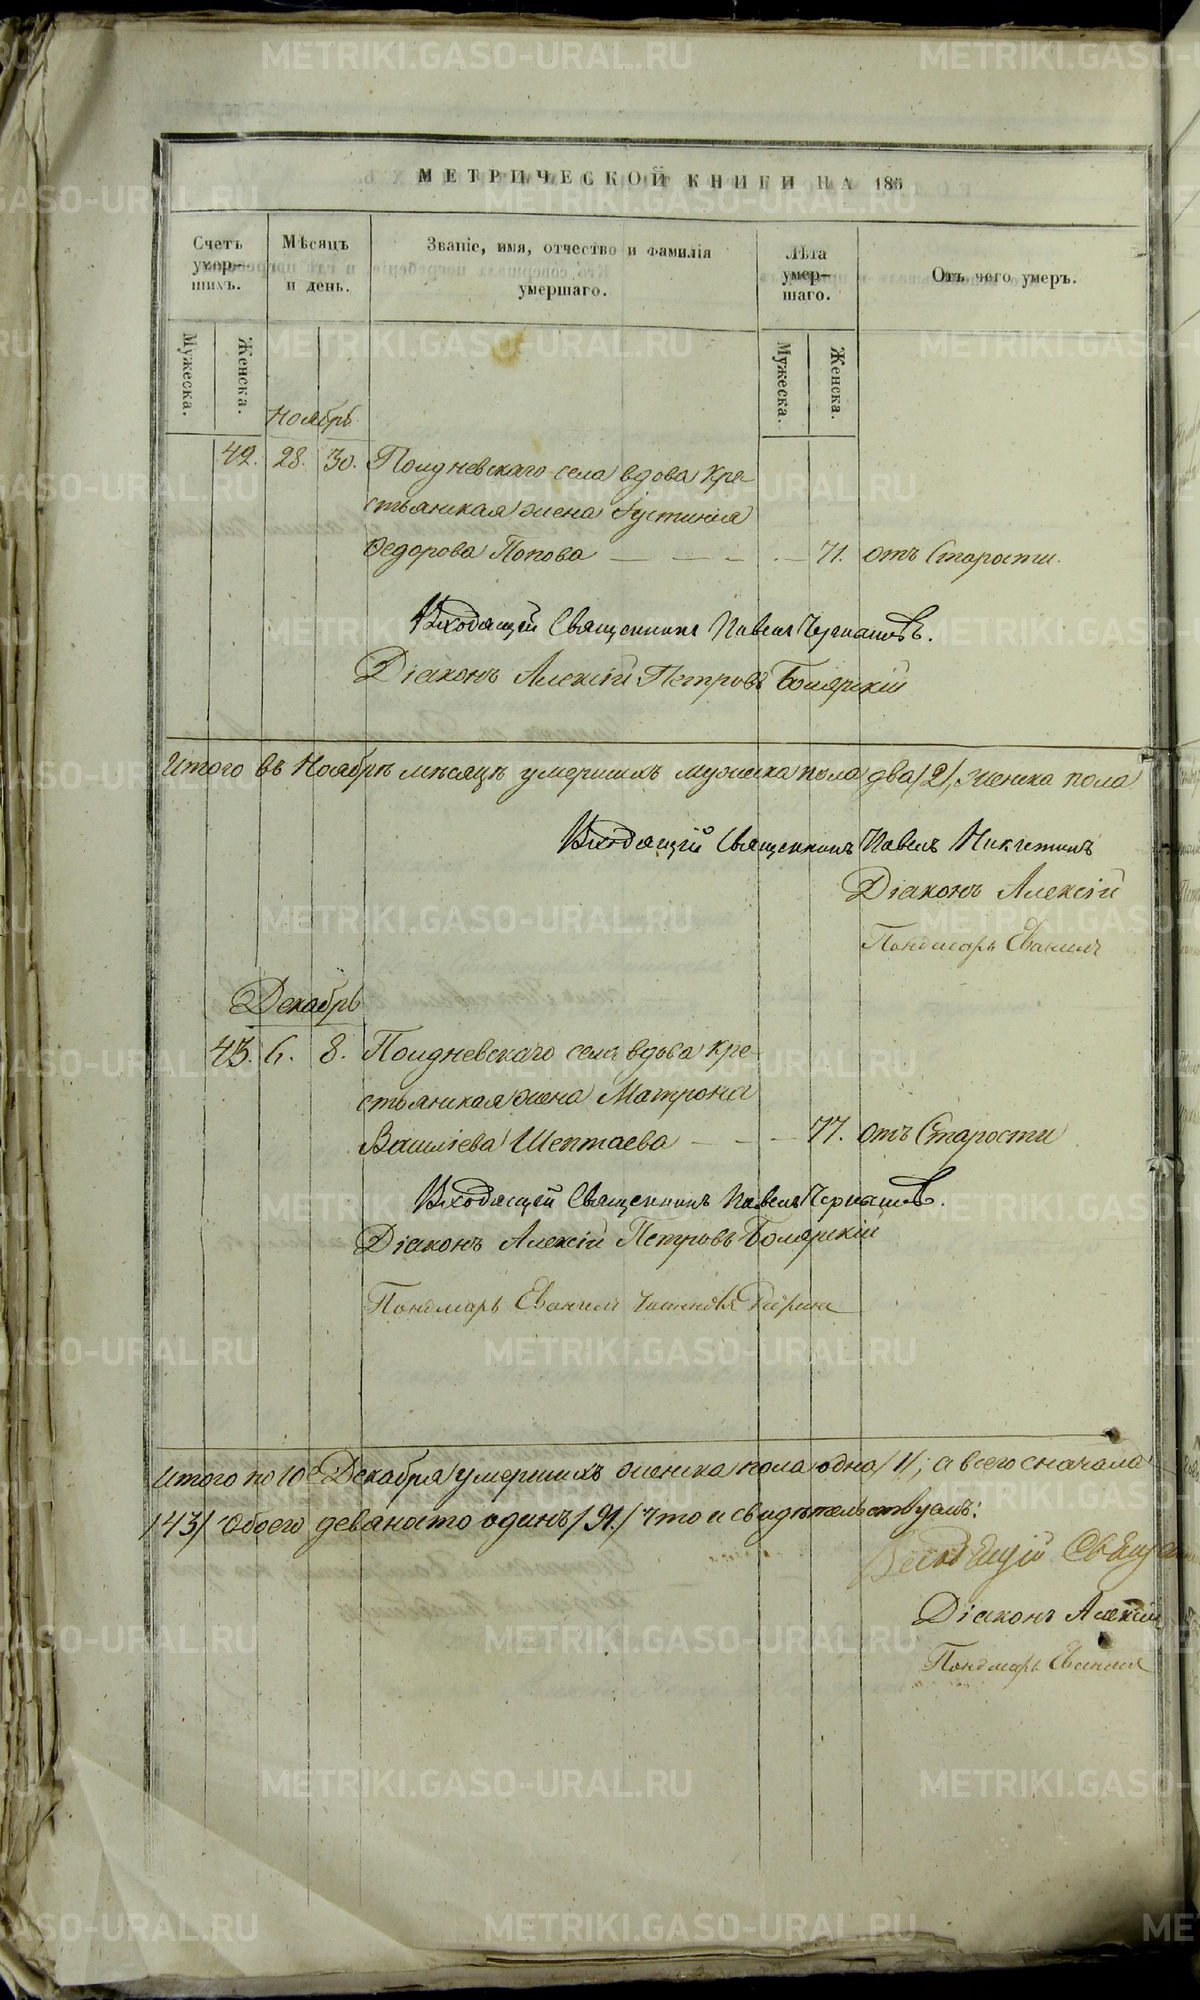 МЕТРИЧЕСКОЙ КНИГИ НА 185
Счетъ умер-шихъ.
Мѣсяцъ и день.
Званіе, имя, отчество и фамилія умершаго.
Лѣта умер-шаго.
Отъ чего умеръ.
Мужеска.
Женска.
Мужеска.
Женска.
Ноябрь
42. 28. 30. Полдневскаго села вдова кре-
стьянская жена Іустинія
Ѳедорова Попова — — — — 71. отъ Старости.
Входящій Священникъ Павелъ
Діаконъ Алексій Петровъ Боярскій
Итого въ Ноябрѣ мѣсяцѣ умершихъ мужеска пола два /2/, женска пола
Входящій Священникъ Павелъ
Діаконъ Алексій
Пономарь
Декабрь
43. 6. 8. Полдневскаго села вдова кре-
стьянская жена Матрона
Василіева Шептаева — — — 77. отъ Старости
Входящій Священникъ Павелъ
Діаконъ Алексій Петровъ Боярскій
Пономарь
Итого по 10е Декабря умершихъ женска пола одна /1/; а всего сначала
/43/ обоего девяносто одинъ /91./ Что и свидѣтельствуемъ:
Діаконъ Алексій
Пономарь
METRIKI.GASO-URAL.RU